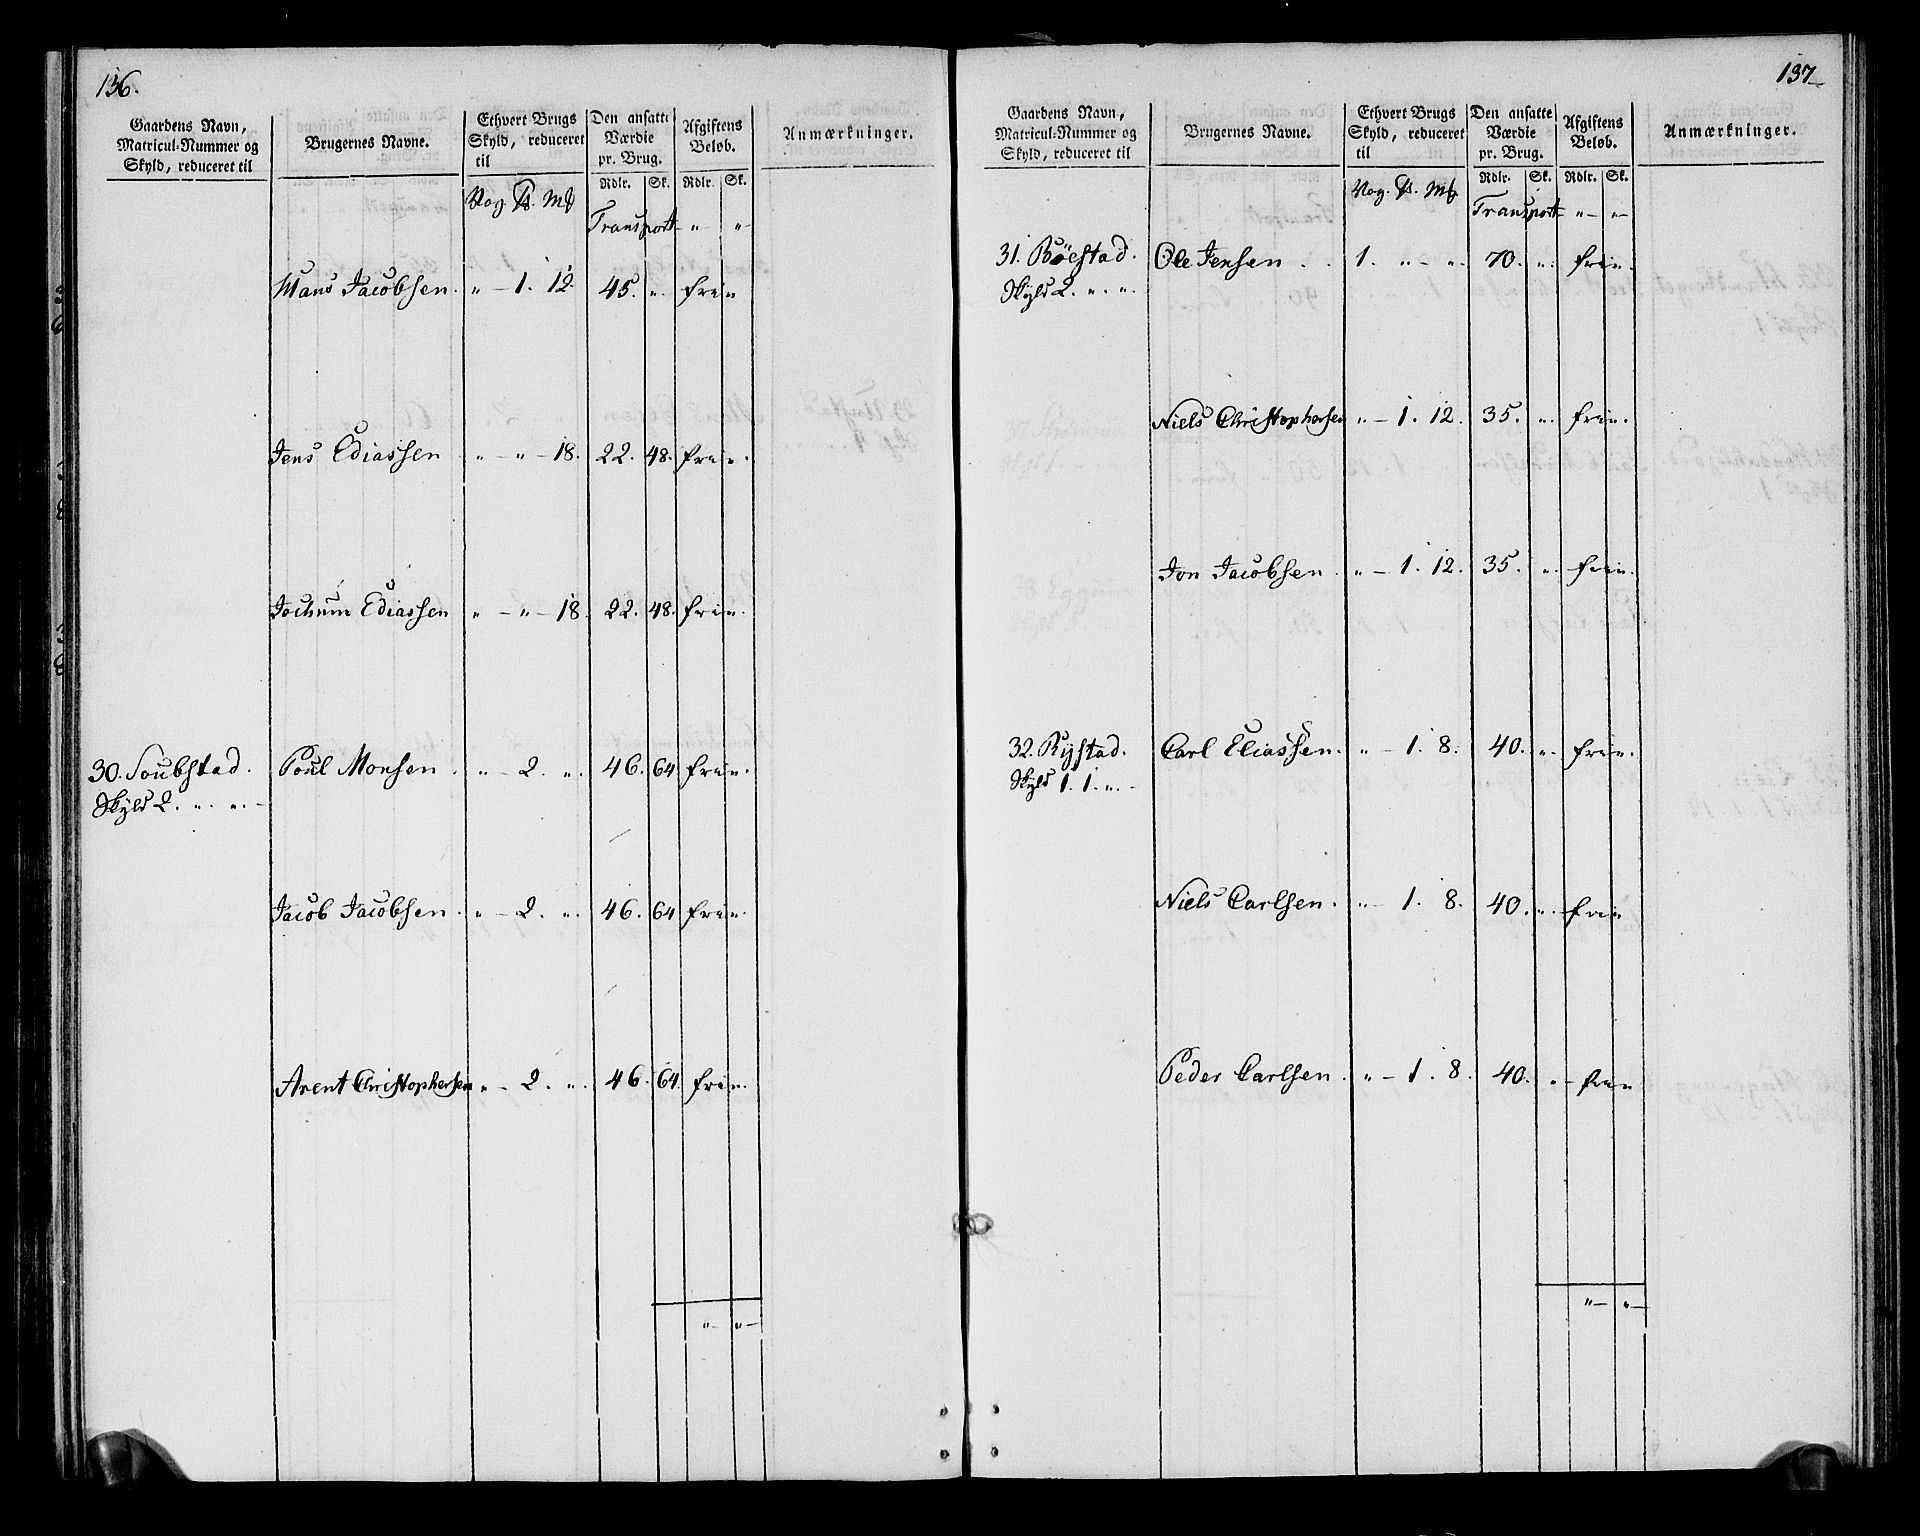 136.
Gaardens Navn, Matricul-Nummer og Skyld, reduceret til
Brugernes Navne.
Ethvert Brugs Skyld, reduceret til
Den ansatte Værdie pr. Brug.
Afgiftens Beløb.
Anmærkninger.
Rdlr. Sk. Rdlr. Sk.
Vog. Mk
Transport „ „
Hans Jacobsen. „ 1. 12. 45. „ frin
Jens Ediassen „ „ 18. 22. 48. frin.
Jochum Ediassen „ „ 18. 22. 48. frin.
30. Soubstad. Poul Monsen. „ 2. „ 46. 64 frin.
Skyld 2. „ „
Jacob Jacobsen. „ 2. „ 46. 64 frin.
Arent Christophersen „ 2. „ 46. 64. frin.
„ „
137
Gaardens Navn, Matricul-Nummer og Skyld, reduceret til
Brugernes Navne.
Ethvert Brugs Skyld, reduceret til
Den ansatte Værdie pr. Brug.
Afgiftens Beløb.
Anmærkninger.
Rdlr. Sk. Rdlr. Sk.
Vog. Mk
Transport „ „
31. Bøestad. Ole Jensen 1. „ „ 70. „ frin.
Skyld 2. „ „
Niels Christophersen „ 1. 12. 35. „ frin.
Jon Jacobsen. „ 1. 12. 35. „ frin.
32. Rystad. Carl Eliassen. „ 1. 8. 40. „ frin.
Skyld 1. 1. „
Niels Carlsen. „ 1. 8. 40. „ frin
Peder Carlsen. „ 1. 8. 40. „ frin
„ „